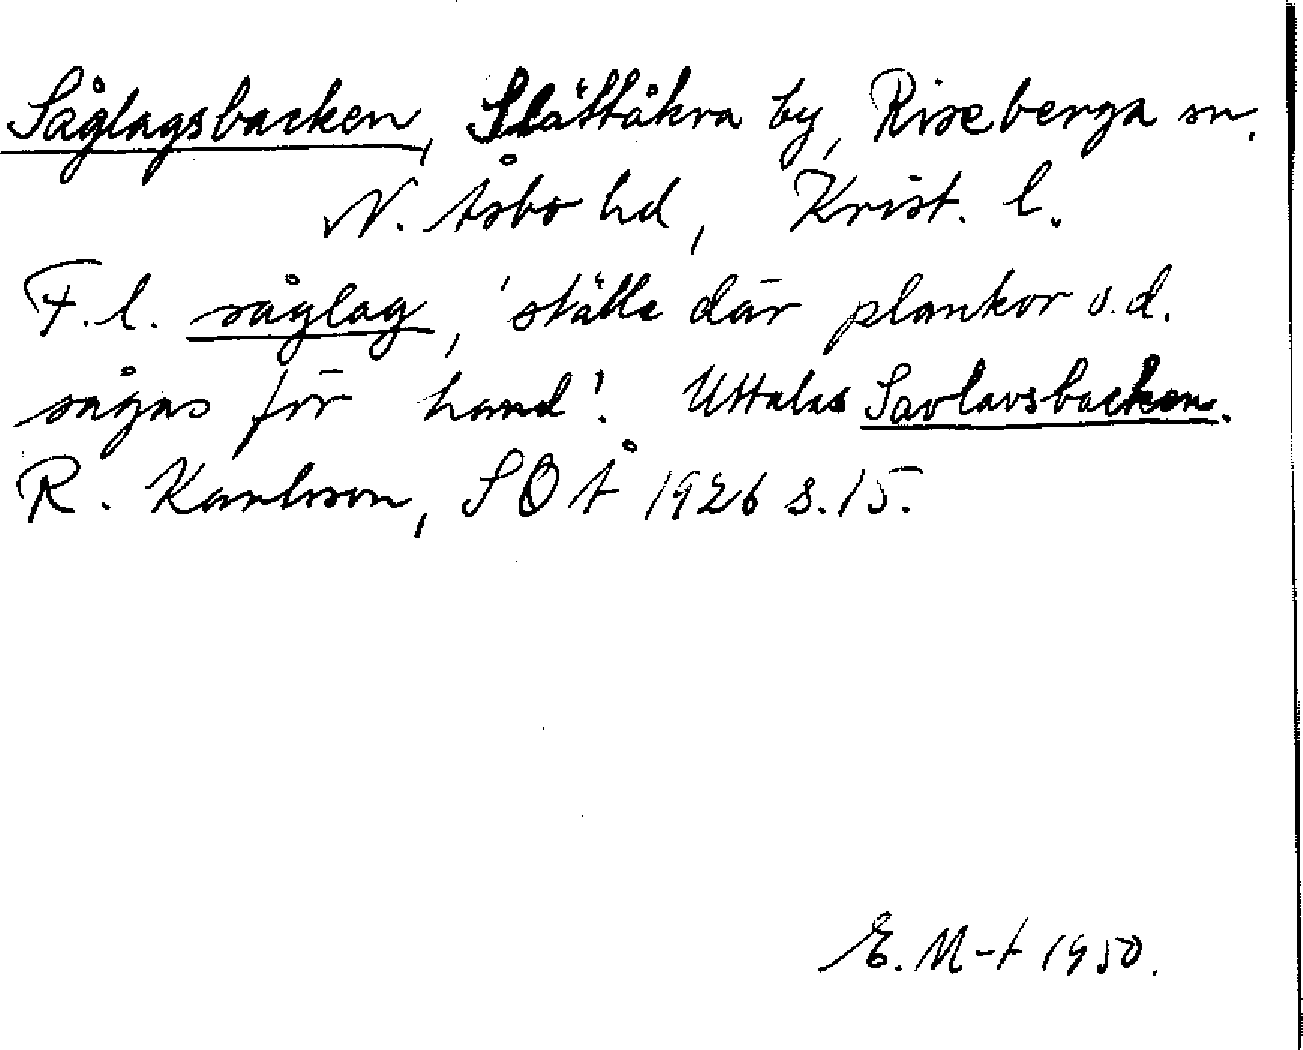 Såglagsbacken, Slättåkra by, Riseberga sn.
N. Åsbo hd, Krist. l.
F.l. såglag, 'ställe där plankor o.d.
sågas för hand'. Uttalas Savlavsbacken.
R. Karlsson, SOÅ 1926 s.15.
E. M-t 1950.